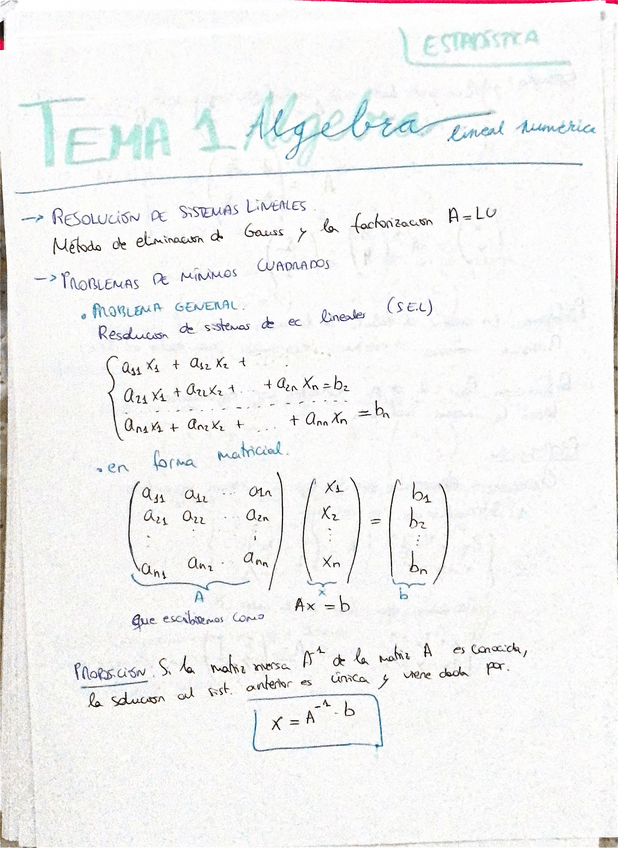 ESTADÍSTICA
TEMA 1 Algebra lineal numérica
→ RESOLUCIÓN DE SISTEMAS LINEALES.
Método de eliminacion de Gauss y la factorización A=LU
→ PROBLEMAS DE MÍNIMOS CUADRADOS
• PROBLEMA GENERAL.
Resolucion de sistemas de ec lineales (S.E.L)
a11 x1 + a12 x2 + ...
a21 x1 + a22 x2 + ... + a2n xn = b2
an1 x1 + an2 x2 + ... + ann xn = bn
• en forma matricial.
a11 a12 ... a1n x1 b1
a21 a22 ... a2n x2 = b2
⋮ ⋮ ⋮ ⋮
an1 an2 ... ann xn bn
A x b
que escribiremos como Ax = b
PROPOSICIÓN. Si la matriz inversa A⁻¹ de la matriz A es conocida,
la solucion al sist. anterior es única y viene dada por.
x = A⁻¹ · b